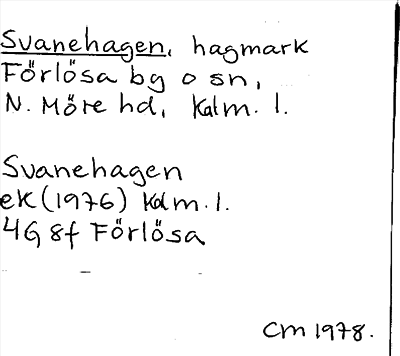 Svanehagen, hagmark
Förlösa bg o sn,
N. Möre hd, Kalm. l.
Svanehagen
ek (1976) Kalm. l.
4G 8f Förlösa
CM 1978.